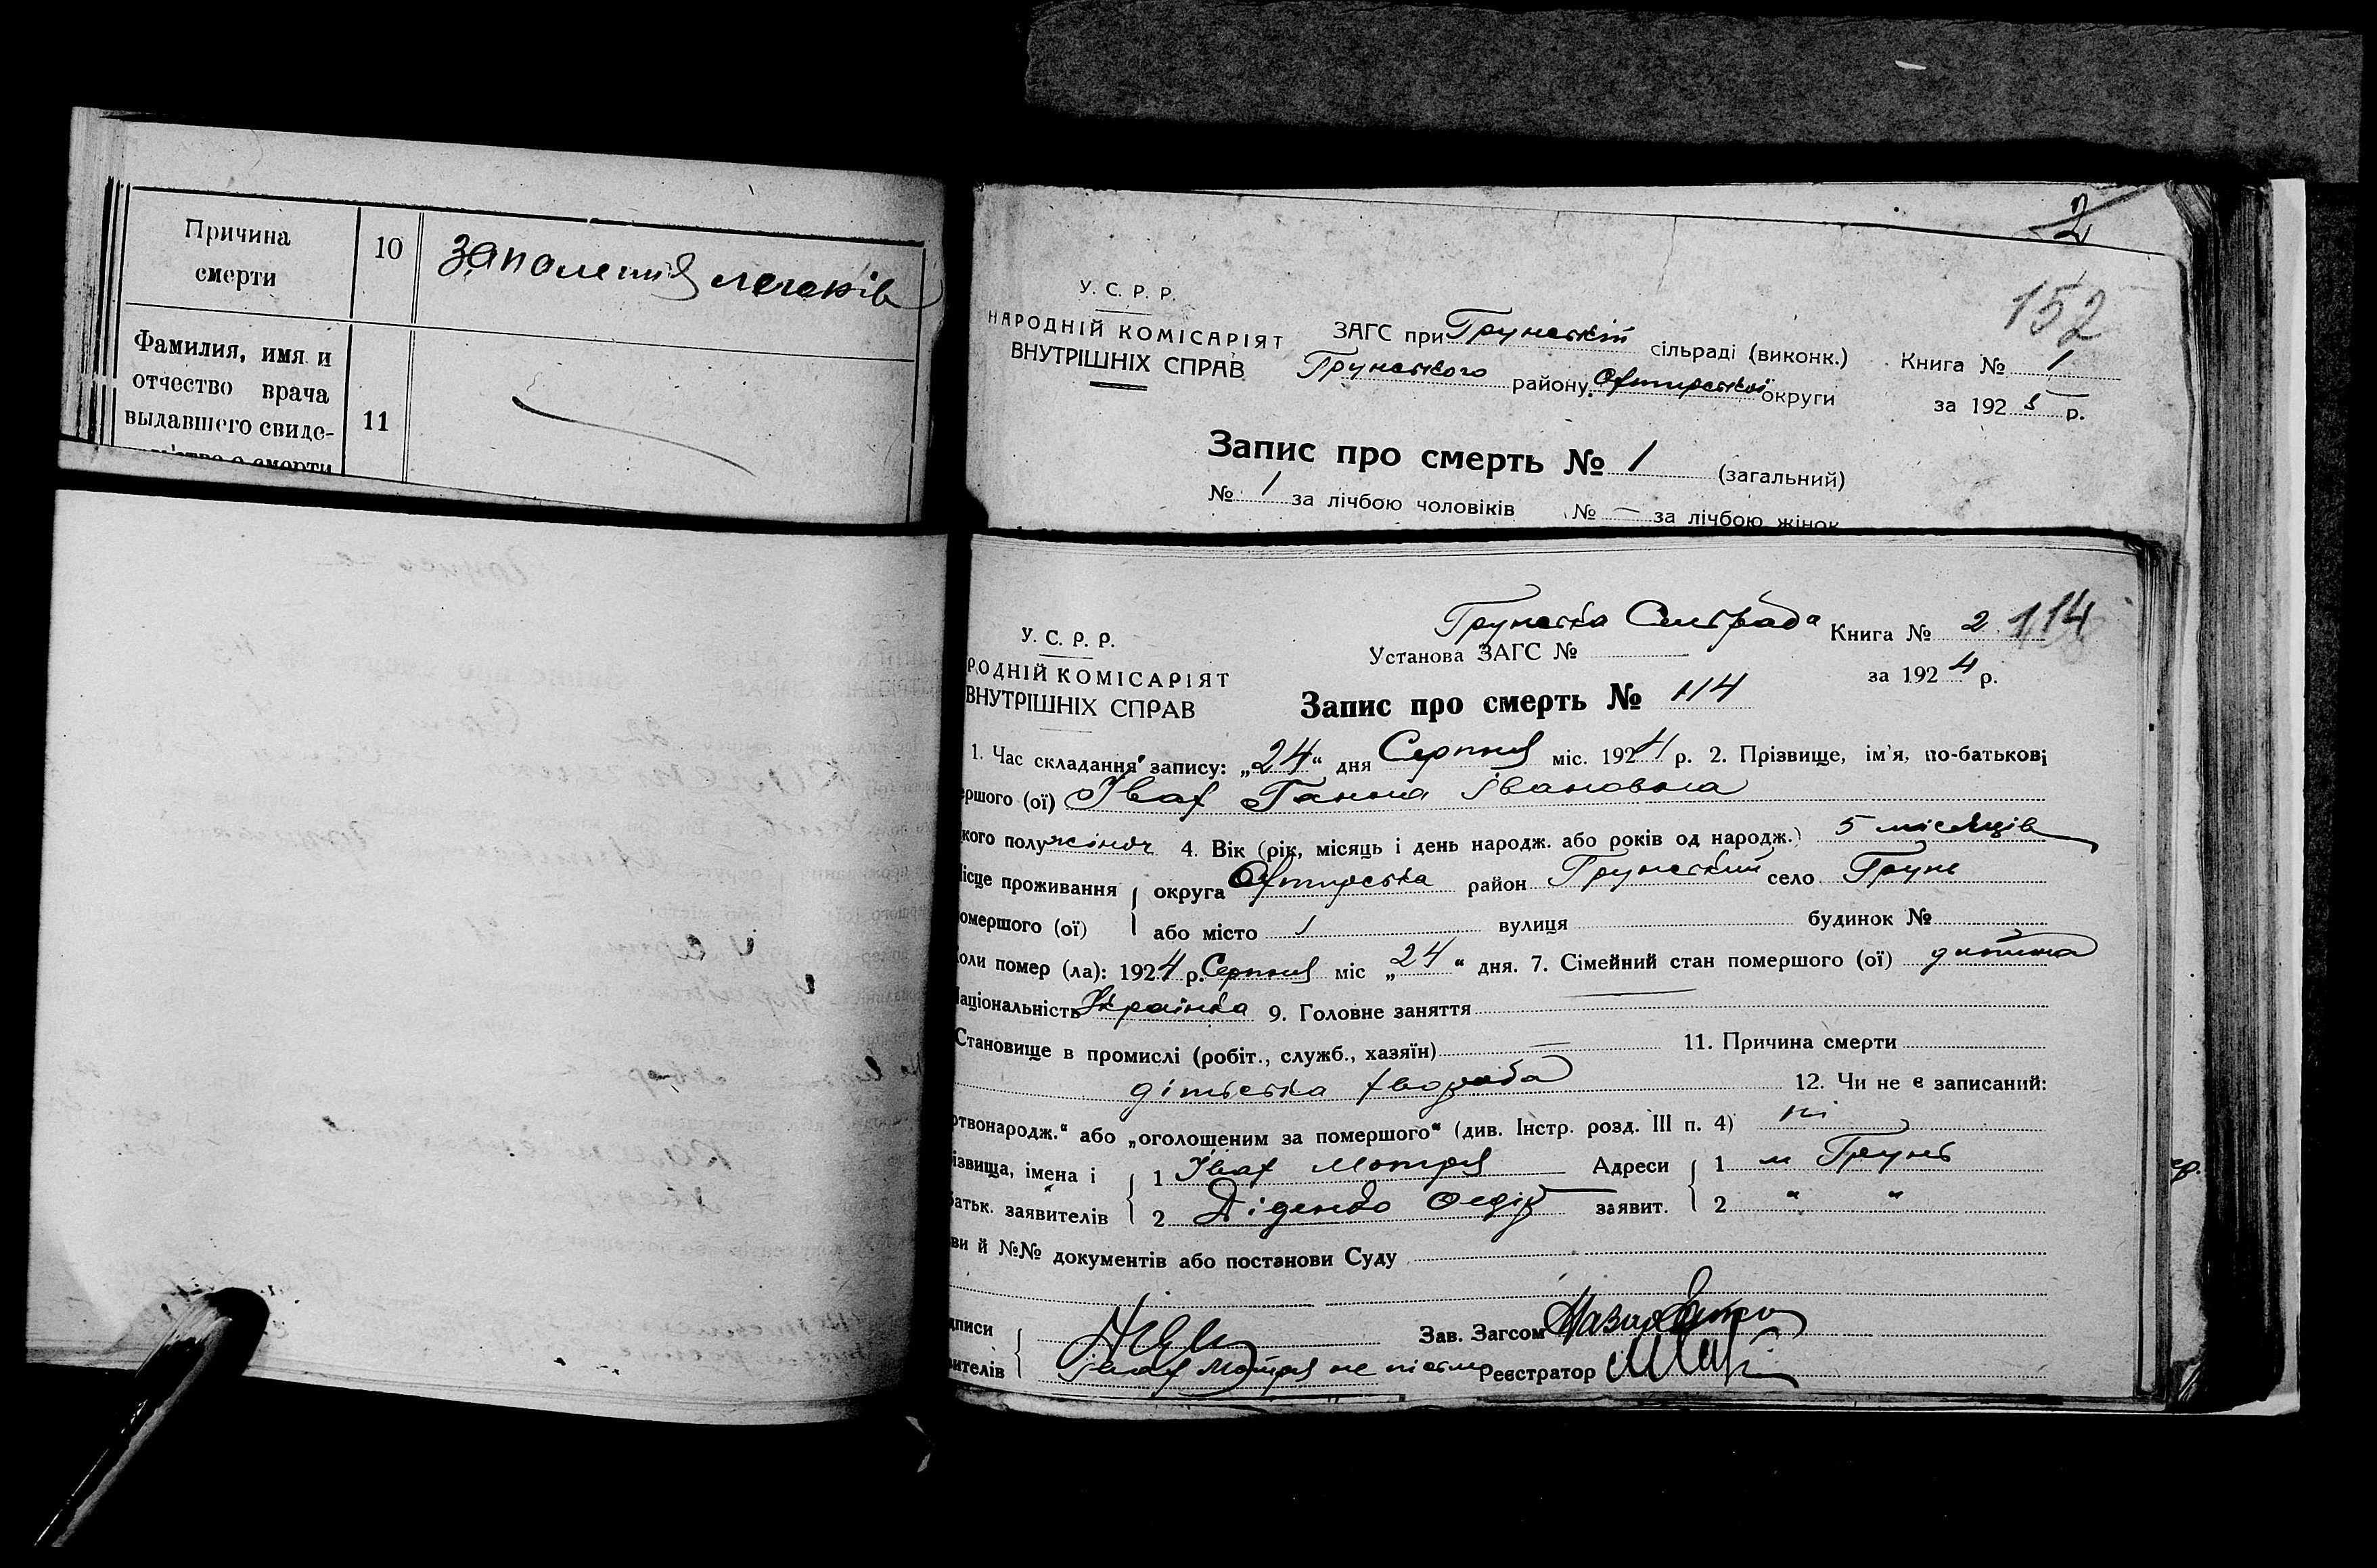 Причина смерти
10
запаления легеків
Фамилия, имя и
отчество врача
выдавшего свиде-
11
2
152
У. С. Р. Р.
НАРОДНІЙ КОМІСАРІЯТ
ВНУТРІШНІХ СПРАВ
ЗАГС при Грунській сільраді (виконк.)
Грунського району Охтирської округи
Книга № 1
за 1925 р.
Запис про смерть № 1 (загальний)
№ 1 за лічбою чоловіків № — за лічбою жінок
Грунська Сельрада
Книга № 2 114
У. С. Р. Р.
РОДНІЙ КОМІСАРІЯТ
ВНУТРІШНІХ СПРАВ
Установа ЗАГС №
за 1924 р.
Запис про смерть № 114
1. Час складання запису: „24“ дня Серпня міс. 1924 р. 2. Прізвище, ім'я, по-батькові
ершого (ої) Івах Ганна Івановна
кого полу жіноч 4. Вік (рік, місяць і день народж. або років од народж.) 5 місяців
ісце проживання округа Охтирська район Грунський село Грунь
омершого (ої) або місто вулиця будинок №
оли помер (ла): 1924 р. Серпня міс „24“ дня. 7. Сімейний стан помершого (ої) дитина
аціональність Українка 9. Головне заняття
Становище в промислі (робіт., служб., хазяїн) — 11. Причина смерти
дітська хвороба 12. Чи не є записаний:
ртвонародж.“ або „оголошеним за помершого“ (див. Інстр. розд. III п. 4) ні
ізвища, імена і 1 Івах Мотря Адреси 1 м Грунь
батьк. заявителів 2 Діденко Федір заявит. 2 " "
ви й №№ документів або постанови Суду
дписи Зав. Загсом
вителів Івах Мотря не письм Реєстратор